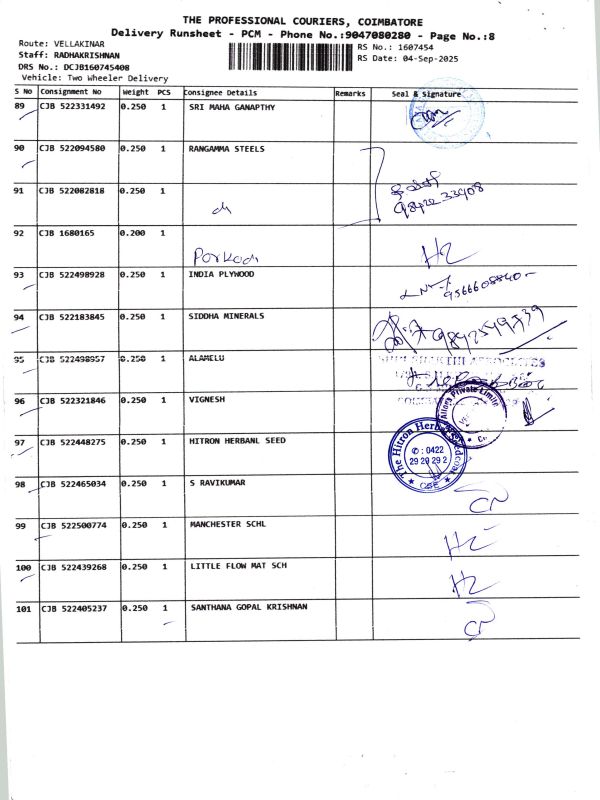 THE PROFESSIONAL COURIERS, COIMBATORE
Delivery Runsheet - PCM - Phone No.:9047080280 - Page No.:8
Route: VELLAKINAR
RS No.: 1607454
Staff: RADHAKRISHNAN
RS Date: 04-Sep-2025
DRS No.: DCJB160745408
Vehicle: Two Wheeler Delivery
S No Consignment No Weight PCS Consignee Details Remarks Seal & Signature
89 CJB 522331492 0.250 1 SRI MAHA GANAPTHY
90 CJB 522094580 0.250 1 RANGAMMA STEELS
91 CJB 522082818 0.250 1
98422 33908
92 CJB 1680165 0.200 1
Porkodi
H2
93 CJB 522498928 0.250 1 INDIA PLYWOOD
9566608840
94 CJB 522183845 0.250 1 SIDDHA MINERALS
9842549739
95 CJB 522498957 0.250 1 ALAMELU
96 CJB 522321846 0.250 1 VIGNESH
Private Limite
97 CJB 522448275 0.250 1 HITRON HERBANL SEED
The Hitron Herb
✆ : 0422
29 29 29 2
CBE
98 CJB 522465034 0.250 1 S RAVIKUMAR
CN
99 CJB 522500774 0.250 1 MANCHESTER SCHL
H2
100 CJB 522439268 0.250 1 LITTLE FLOW MAT SCH
H2
101 CJB 522405237 0.250 1 SANTHANA GOPAL KRISHNAN
CN